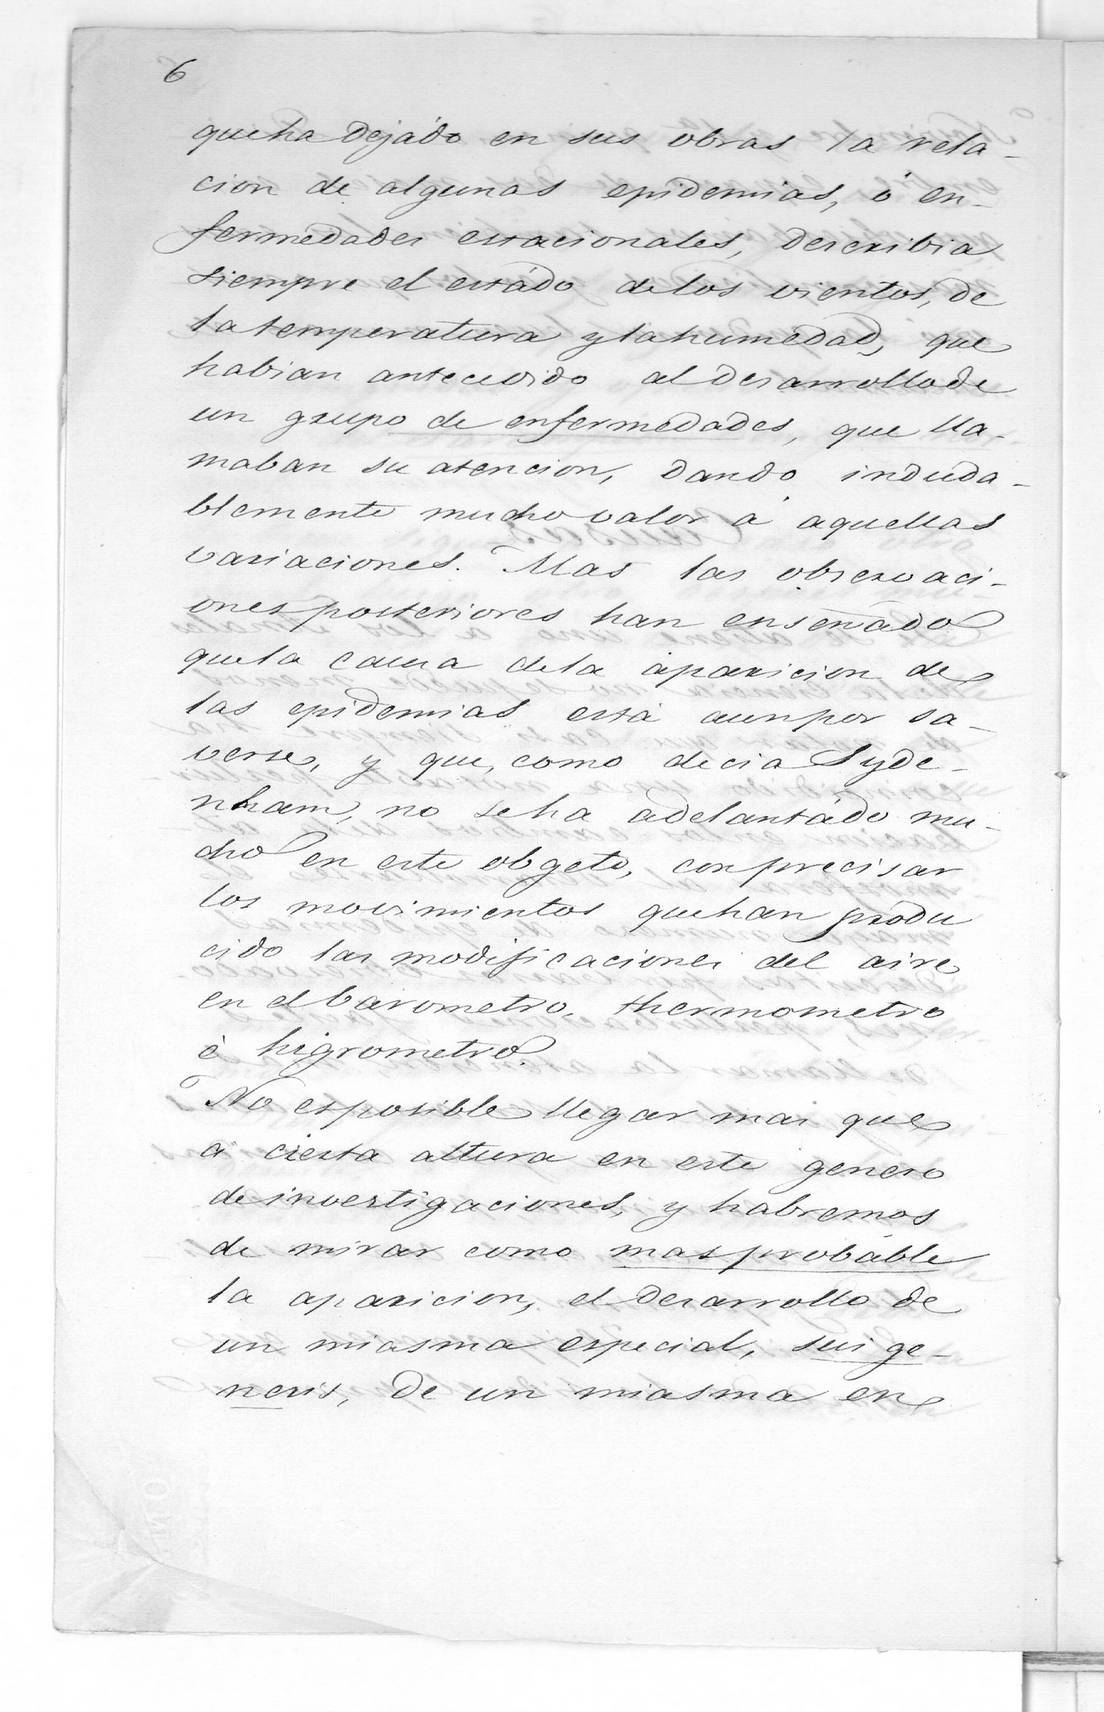 6
que ha dejádo en sus obras la rela-
cion de algunas epidemias, ó en-
fermedades estacionales, describia
siempre el estádo de los vientos, de
la temperatura y la humedad, que
habian antecedido al desarrollo de
un grupo de enfermedades, que lla-
maban su atencion, dando induda-
blemente mucho valor á aquellas
variaciones. Mas las observaci-
ones posteriores han enseñado
que la causa de la aparicion de
las epidemias está aun por sa-
verse, y que, como decia Syde-
nham, no se ha adelantádo mu-
cho en este obgeto, con precisar
los movimientos que han produ
cido las modificaciones del aire
en el barometro, thermometro
è higrometro.
No es posible llegar mas que
á cierta altura en este genero
de investigaciones, y habremos
de mirar como mas probáble
la aparicion, el desarrollo de
un miasma especial, sui ge-
neris, de un miasma en